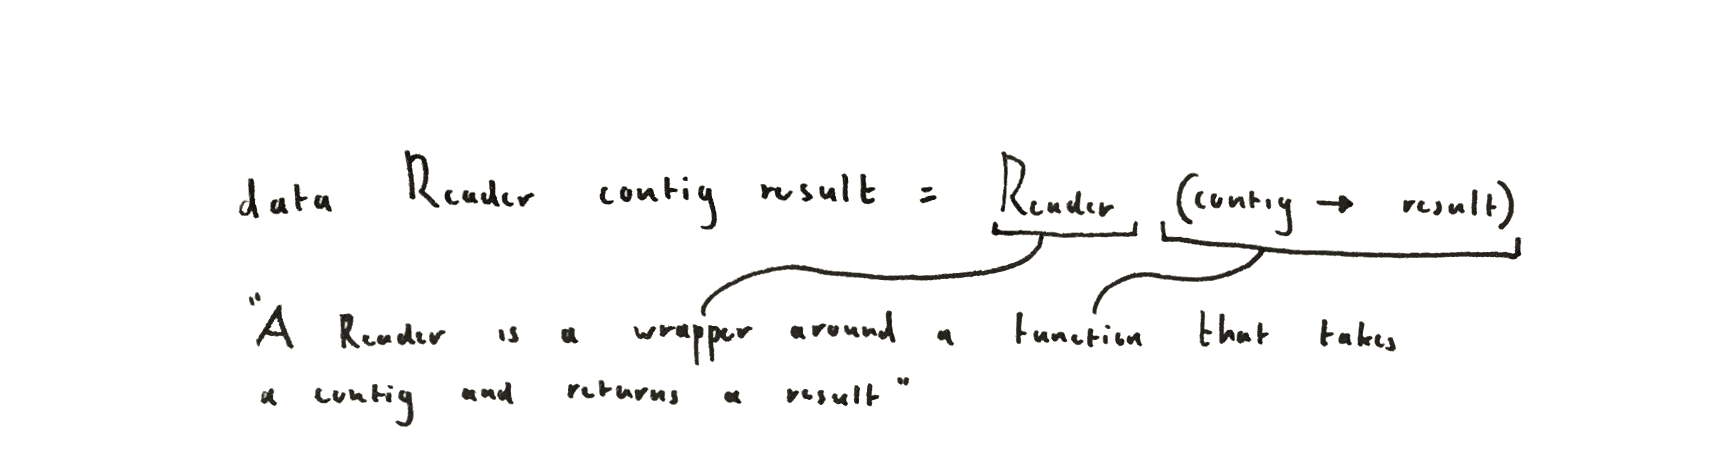 data Reader config result = Reader (config → result)
"A Reader is a wrapper around a function that takes
a config and returns a result"